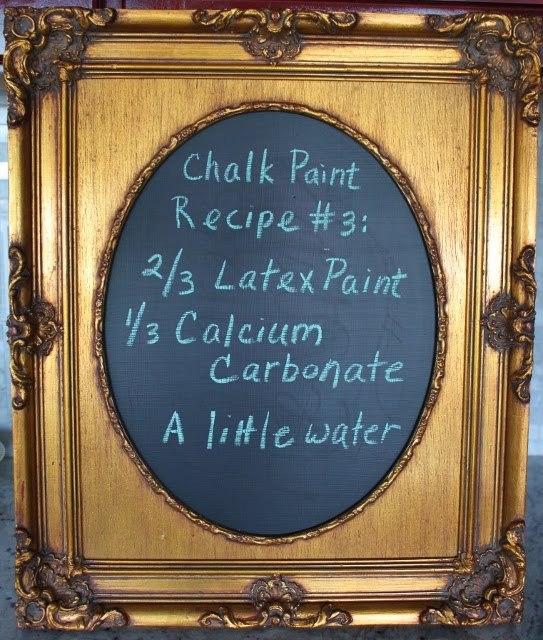 Chalk Paint
Recipe #3:
2/3 Latex Paint
1/3 Calcium
Carbonate
A little water